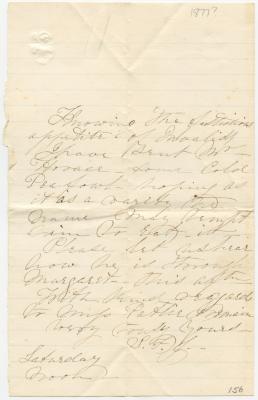 1877?
Knowing the
appetite of Invalids
I have sent Mr
Horace some Cold
Pea fowl hoping as
it is a rarity the
name may tempt
him to Eat it
Please let us hear
how he is through
Margaret this aft
With kind regards
to Miss
very truly yours
Saturday
noon
156